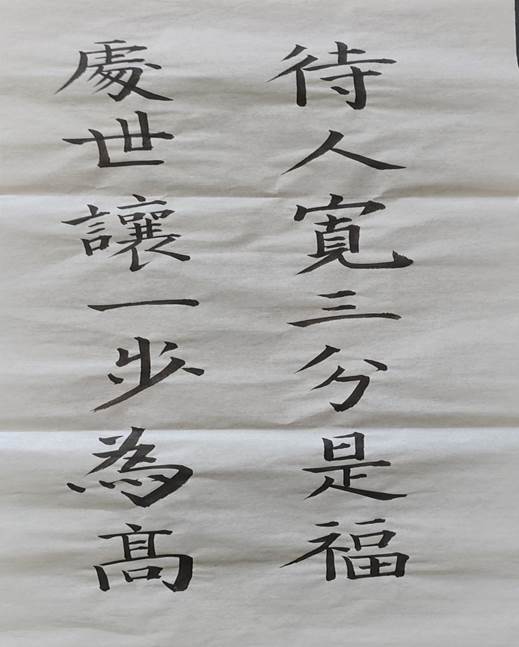 待人寛三分是福
處世讓一步為髙